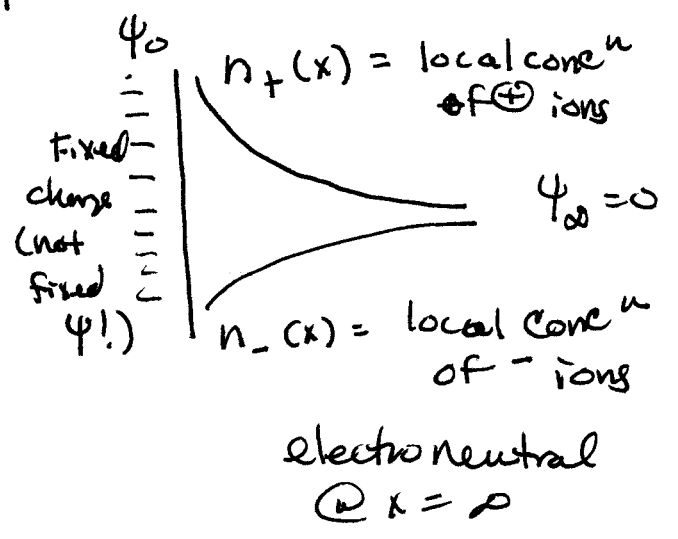 ψ₀
n₊(x) = local concⁿ
of ⊕ ions
Fixed
charge
(not
fixed
ψ!)
ψ∞ = 0
n₋(x) = local concⁿ
of - ions
electroneutral
@ x = ∞